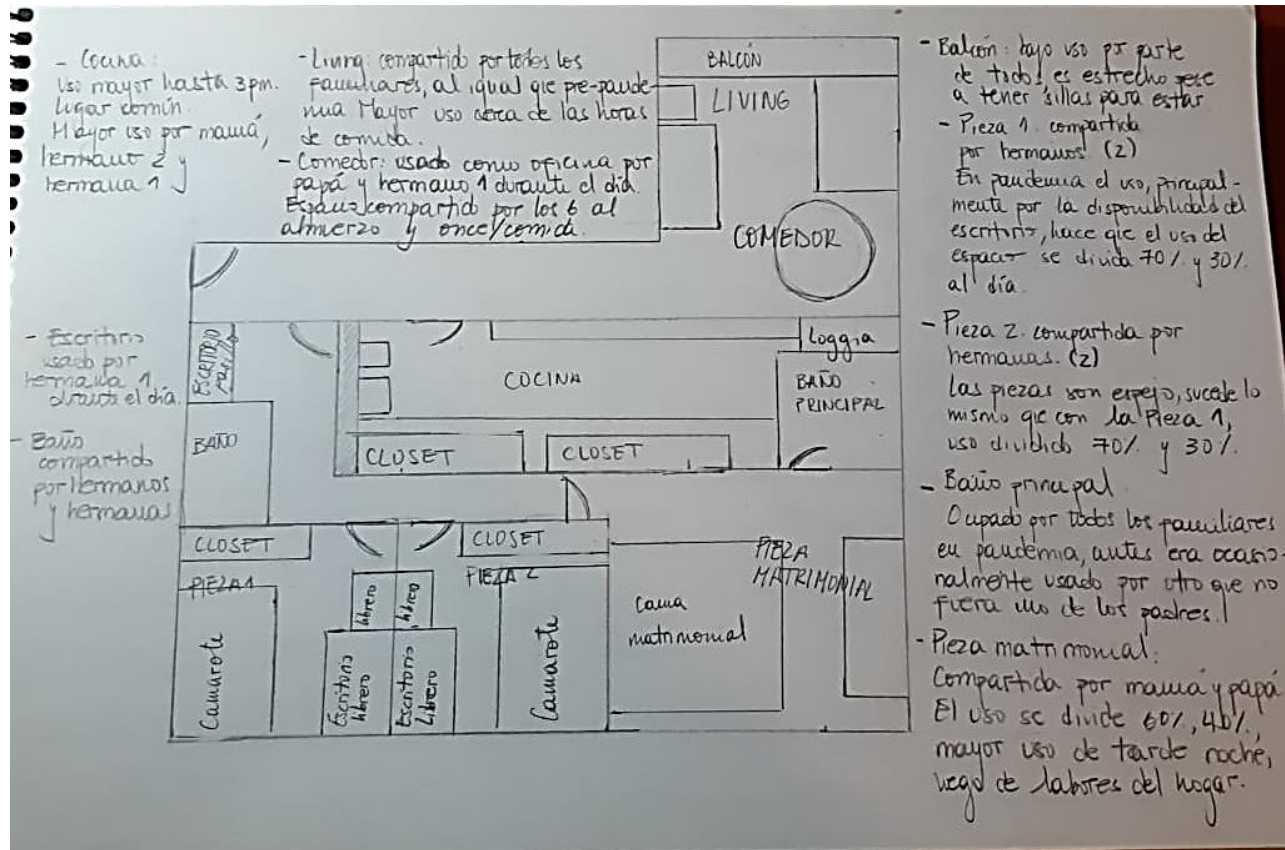 - Cocina:
Uso mayor hasta 3pm.
lugar común.
Mayor uso por mamá,
hermano 2 y
hermana 1
- Living: compartido por todos los
familiares, al igual que pre-pande-
mia Mayor uso cerca de las horas
de comida.
- Comedor: usado como oficina por
papá y hermano 1 durante el día.
Espacio compartido por los 6 al
almuerzo y once/comida.
- Escritorio
usado por
hermana 1
durante el día.
- Baño
compartido
por hermanos
y hermanas
BALCÓN
LIVING
COMEDOR
ESCRITORIO
COCINA
Loggia
BAÑO
PRINCIPAL
BAÑO
CLOSET
CLOSET
CLOSET
CLOSET
PIEZA 1
PIEZA 2
PIEZA
MATRIMONIAL
librero
librero
Cama
matrimonial
Camarote
Escritorio
librero
Escritorio
Librero
Camarote
- Balcón: bajo uso por parte
de todos, es estrecho pese
a tener sillas para estar
- Pieza 1. compartida
por hermanos (2)
En pandemia el uso, principal-
mente por la disponibilidad del
escritorio, hace que el uso del
espacio se divida 70% y 30%
al día.
- Pieza 2. compartida por
hermanas. (2)
Las piezas son espejo, sucede lo
mismo que con la Pieza 1,
uso dividido 70% y 30%.
- Baño principal
Ocupado por todos los familiares
en pandemia, antes era ocasio-
nalmente usado por otro que no
fuera uno de los padres.
- Pieza matrimonial:
Compartida por mamá y papá
El uso se divide 60%, 40%,
mayor uso de tarde noche,
luego de labores del hogar.